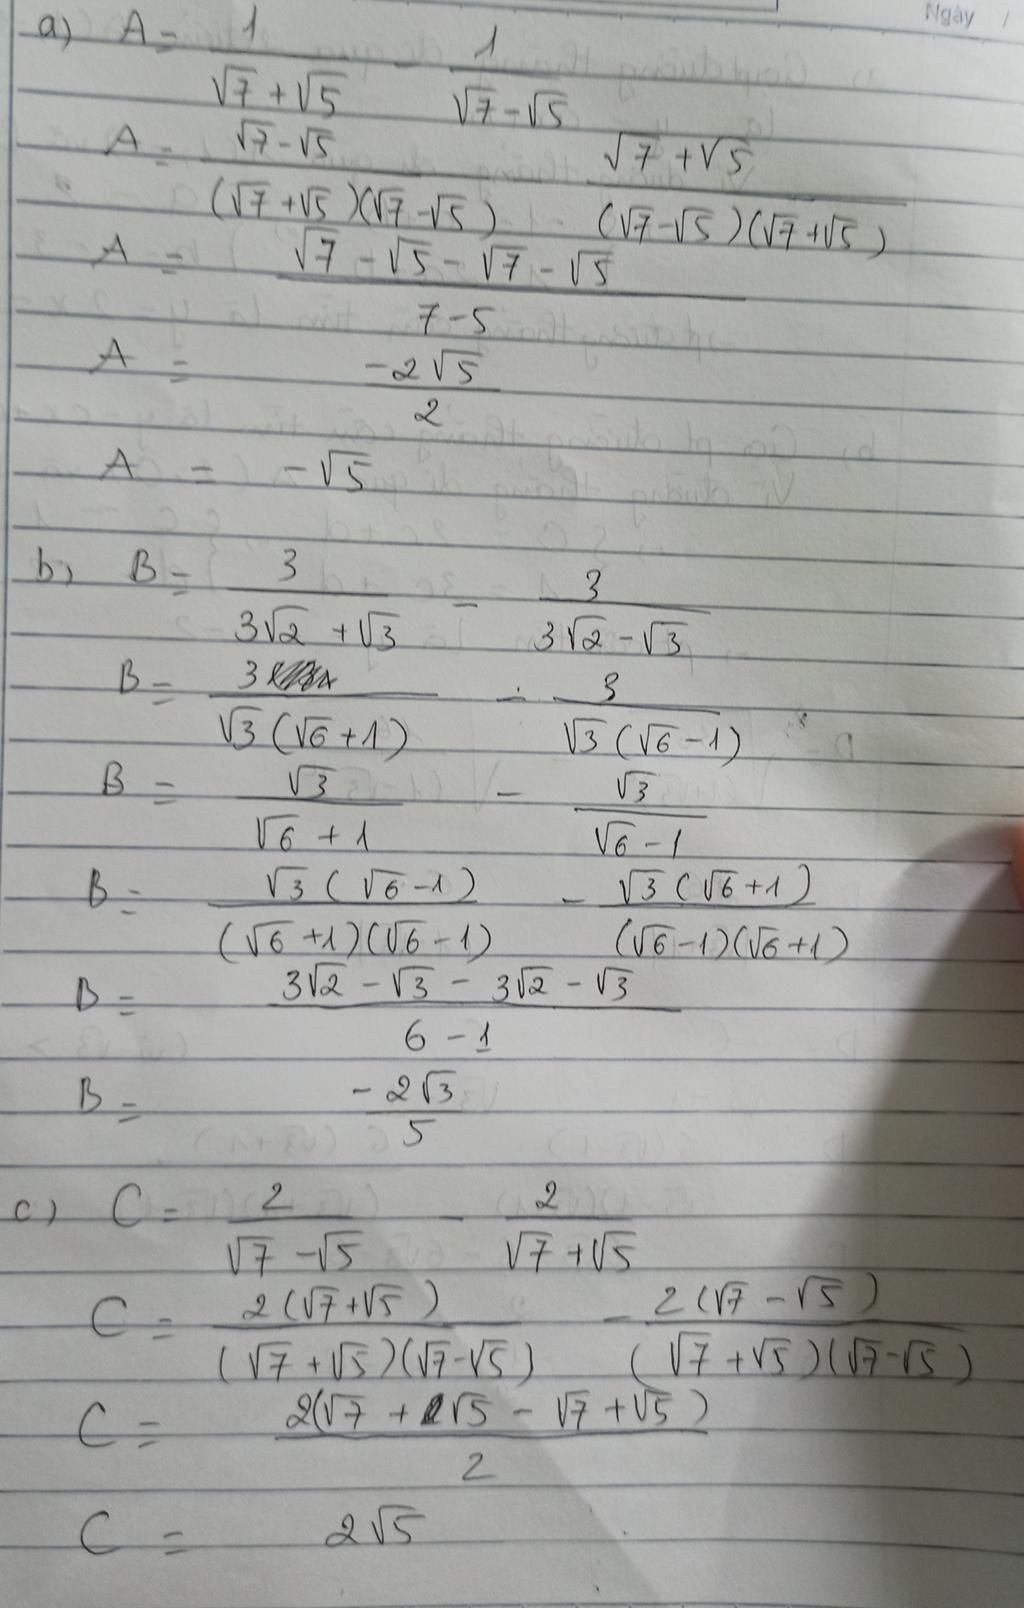 Ngày /
a) A = 1/(√7 + √5) - 1/(√7 - √5)
A = (√7 - √5)/((√7 + √5)(√7 - √5)) - (√7 + √5)/((√7 - √5)(√7 + √5))
A = (√7 - √5 - √7 - √5)/(7 - 5)
A = (-2√5)/2
A = -√5
b) B = 3/(3√2 + √3) - 3/(3√2 - √3)
B = 3/(√3(√6 + 1)) - 3/(√3(√6 - 1))
B = √3/(√6 + 1) - √3/(√6 - 1)
B = (√3(√6 - 1))/((√6 + 1)(√6 - 1)) - (√3(√6 + 1))/((√6 - 1)(√6 + 1))
B = (3√2 - √3 - 3√2 - √3)/(6 - 1)
B = (-2√3)/5
c) C = 2/(√7 - √5) - 2/(√7 + √5)
C = (2(√7 + √5))/((√7 + √5)(√7 - √5)) - (2(√7 - √5))/((√7 + √5)(√7 - √5))
C = (2(√7 + √5 - √7 + √5))/2
C = 2√5